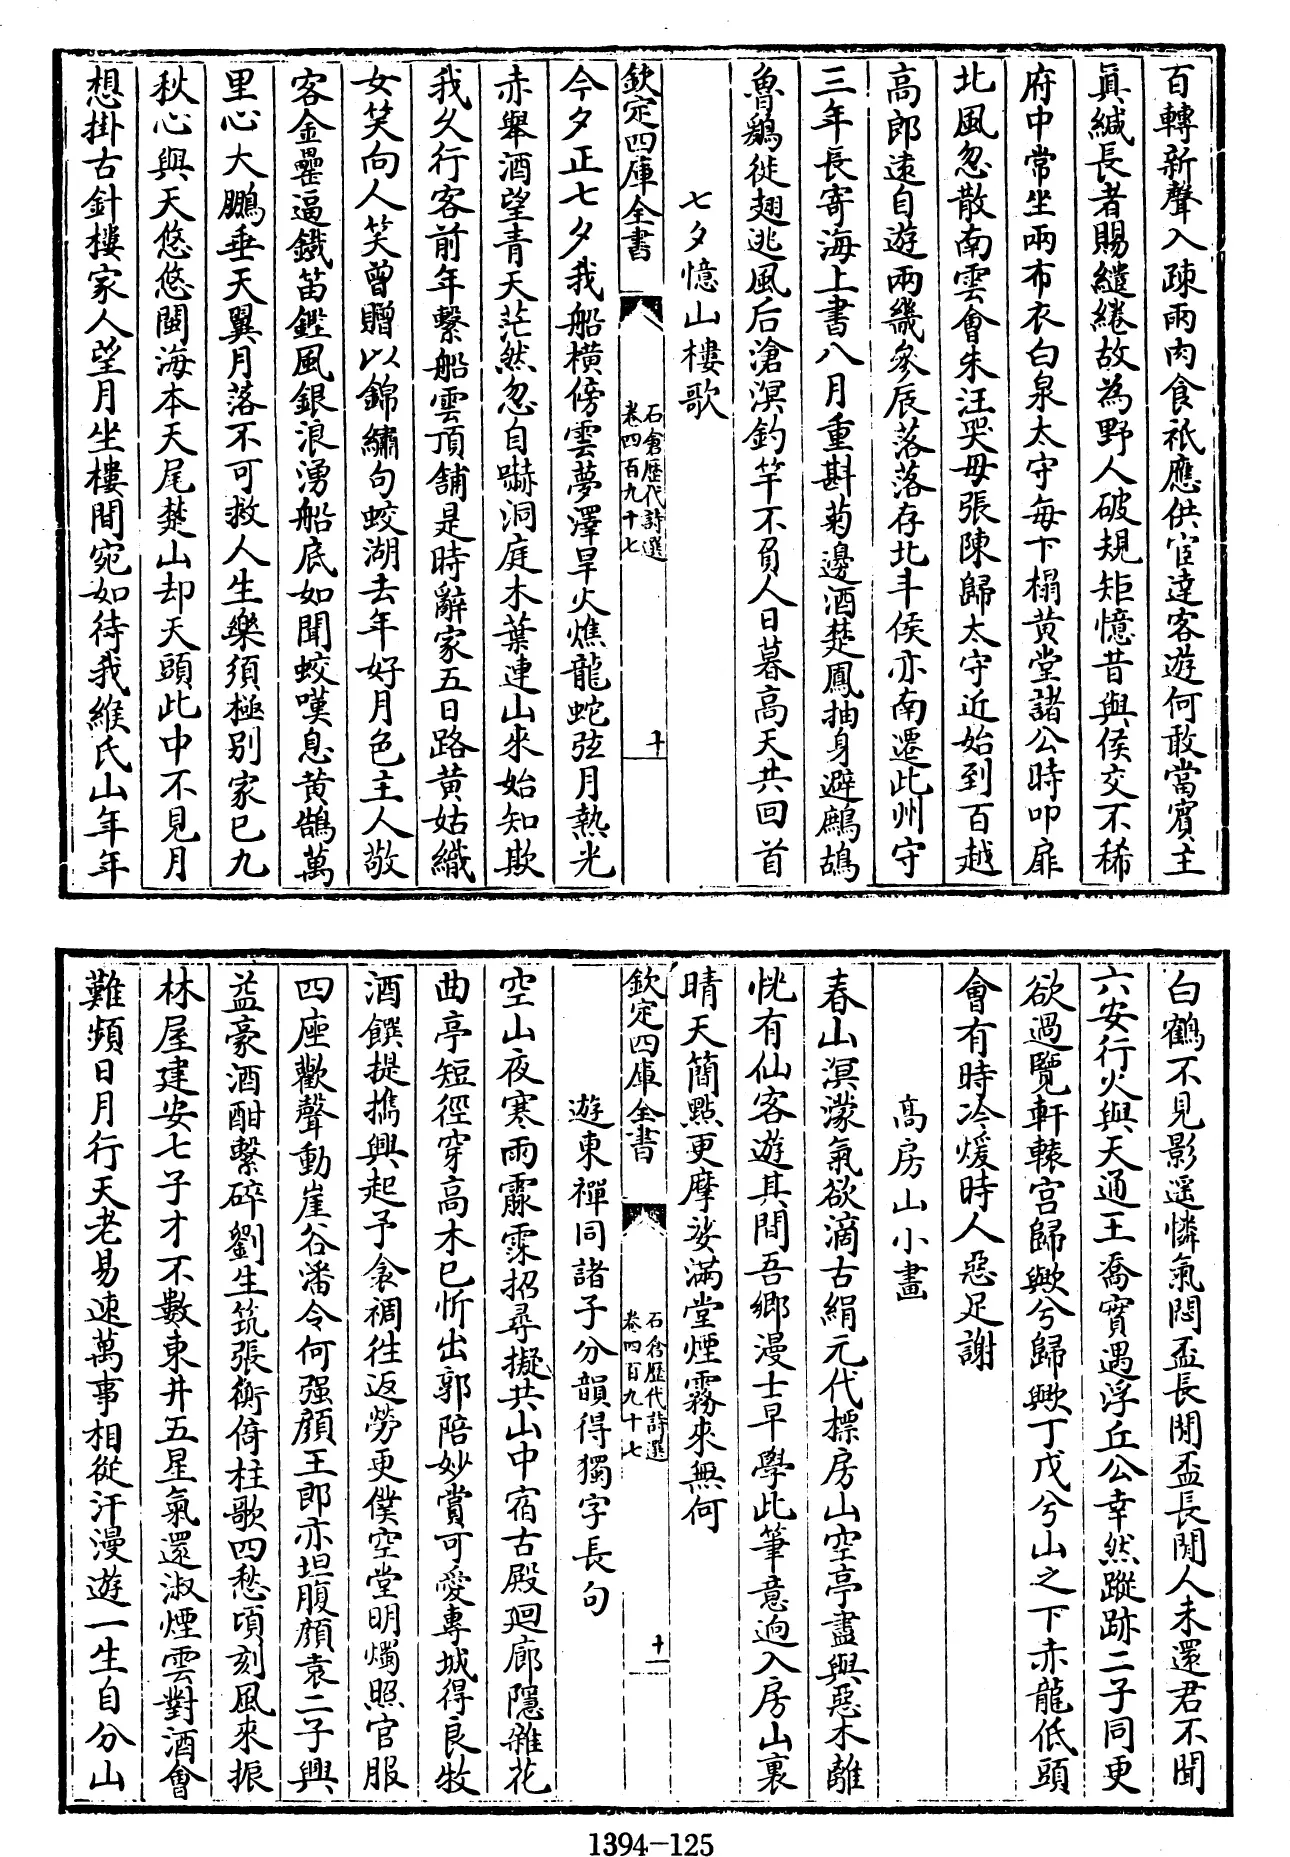 百轉新聲入疎兩肉食祇應供宦達客遊何敢當賓主
眞緘長者賜繾綣故為野人破規矩憶昔與侯交不稀
府中常坐兩布衣白泉太守每下榻黄堂諸公時叩扉
北風忽散南雲會朱汪哭母張陳歸太守近始到百越
高郎逺自遊兩畿參辰落落存北斗侯亦南遷此州守
三年長寄海上書八月重斟菊邊酒楚鳳抽身避鷓鴣
魯鷄徙翅逃風后滄溟釣竿不負人日暮高天共回首
七夕憶山樓歌
欽定四庫全書
石倉歴代詩選
卷四百九十七
十
今夕正七夕我船横傍雲夢澤旱火燋龍蛇弦月熱光
赤舉酒望青天茫然忽自嚇洞庭木葉連山來始知欺
我久行客前年繫船雲頂舖是時辭家五日路黄姑織
女笑向人笑曾贈以錦繡句蛟湖去年好月色主人敬
客金罍逼鐵笛鏗風銀浪湧船底如聞蛟嘆息黄鵠萬
里心大鵬垂天翼月落不可救人生樂須極别家已九
秋心與天悠悠閩海本天尾楚山却天頭此中不見月
想掛古針樓家人望月坐樓間宛如待我緱氏山年年
白鶴不見影遥憐氣悶盃長閒盃長閒人未還君不聞
六安行火與天通王喬實遇浮丘公幸然蹤跡二子同更
欲過覽軒轅宫歸歟兮歸歟丁戊兮山之下赤龍低頭
會有時冷煖時人惡足謝
高房山小畫
春山溟濛氣欲滴古絹元代標房山空亭盡與惡木離
恍有仙客遊其間吾鄉漫士早學此筆意逈入房山裏
晴天簡點更摩娑滿堂煙霧來無何
欽定四庫全書
石倉歴代詩選
卷四百九十七
十一
遊東禪同諸子分韻得獨字長句
空山夜寒雨霡霂招尋擬共山中宿古殿廻廊隱雜花
曲亭短徑穿高木已忻出郭陪妙賞可愛專城得良牧
酒饌提攜興起予衾裯往返勞更僕空堂明燭照官服
四座歡聲動崖谷潘令何强顔王郎亦坦腹顔袁二子興
益豪酒酣擊碎劉生筑張衡倚柱歌四愁頃刻風來振
林屋建安七子才不數東井五星氣還淑煙雲對酒會
難頻日月行天老易速萬事相從汗漫遊一生自分山
1394-125